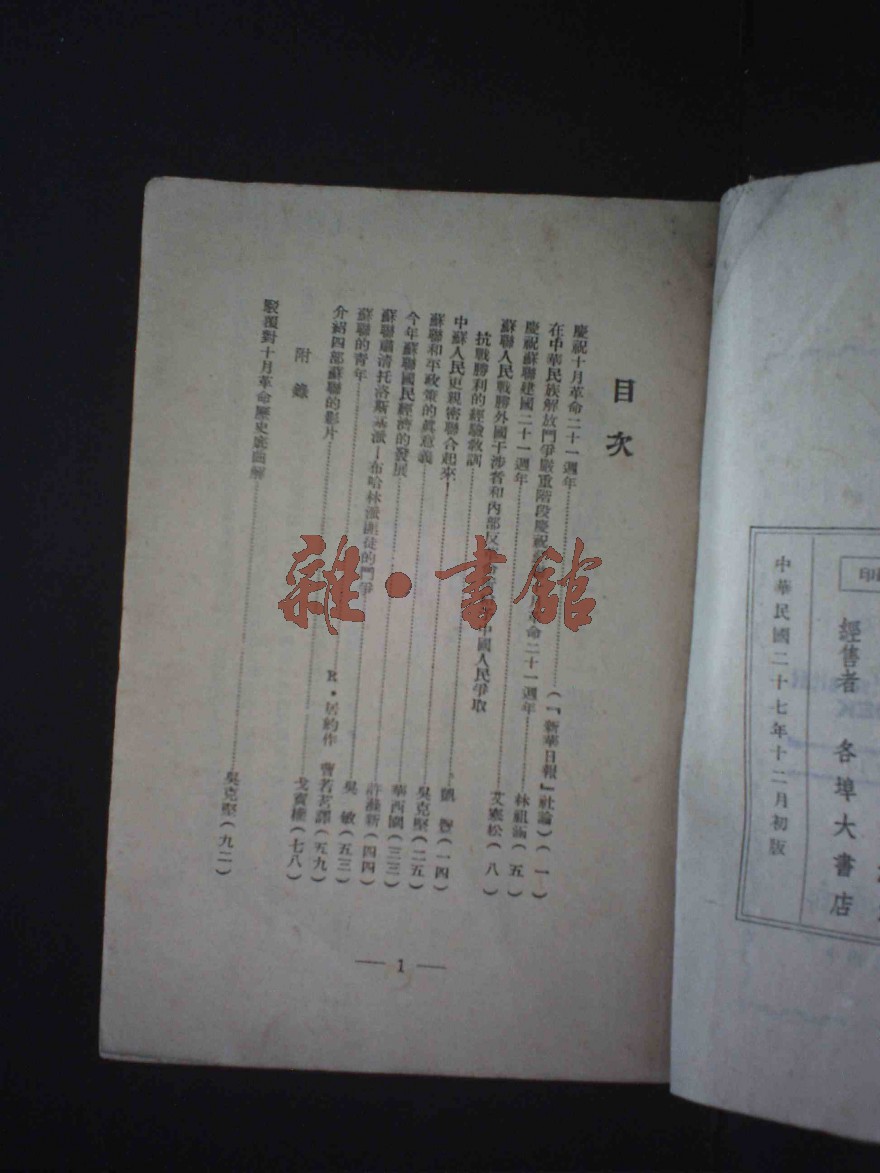 印
經售者 各埠大書店
中華民國二十七年十二月初版
目次
慶祝十月革命二十一週年……(『新華日報』社論)(一)
在中華民族解放鬥爭嚴重階段慶祝月革命二十一週年……林祖涵(五)
慶祝蘇聯建國二十一週年……艾寒松(八)
蘇聯人民戰勝外國干涉者和內部反中國人民爭取
抗戰勝利的經驗教訓……凱豐(一四)
中蘇人民更親密聯合起來……吳克堅(二五)
蘇聯和平政策的眞意義……華西園(三三)
今年蘇聯國民經濟的發展……許滌新(四四)
蘇聯肅清托洛斯基派—布哈林派匪徒的鬥爭……吳敏(五三)
蘇聯的青年……R·居約作 曹若茗譯(五九)
介紹四部蘇聯的影片……戈寶權(七八)
附錄
駁覆對十月革命歷史底曲解……吳克堅(九二)
— 1 —
雜·書館